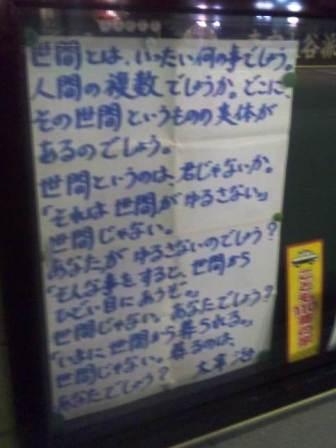 世間とは、いったい何の事でしょう。
人間の複数でしょうか。どこに、
その世間というものの実体が
あるのでしょう。
世間というのは、君じゃないか。
「それは世間がゆるさない。」
世間じゃない。
あなたがゆるさないのでしょう?
「そんな事をすると、世間から
ひどい目にあうぞ。」
世間じゃない。あなたでしょう?
「いまに世間から葬られる。」
世間じゃない。葬るのは、
あなたでしょう? 太宰治
こども110番の家
谷派